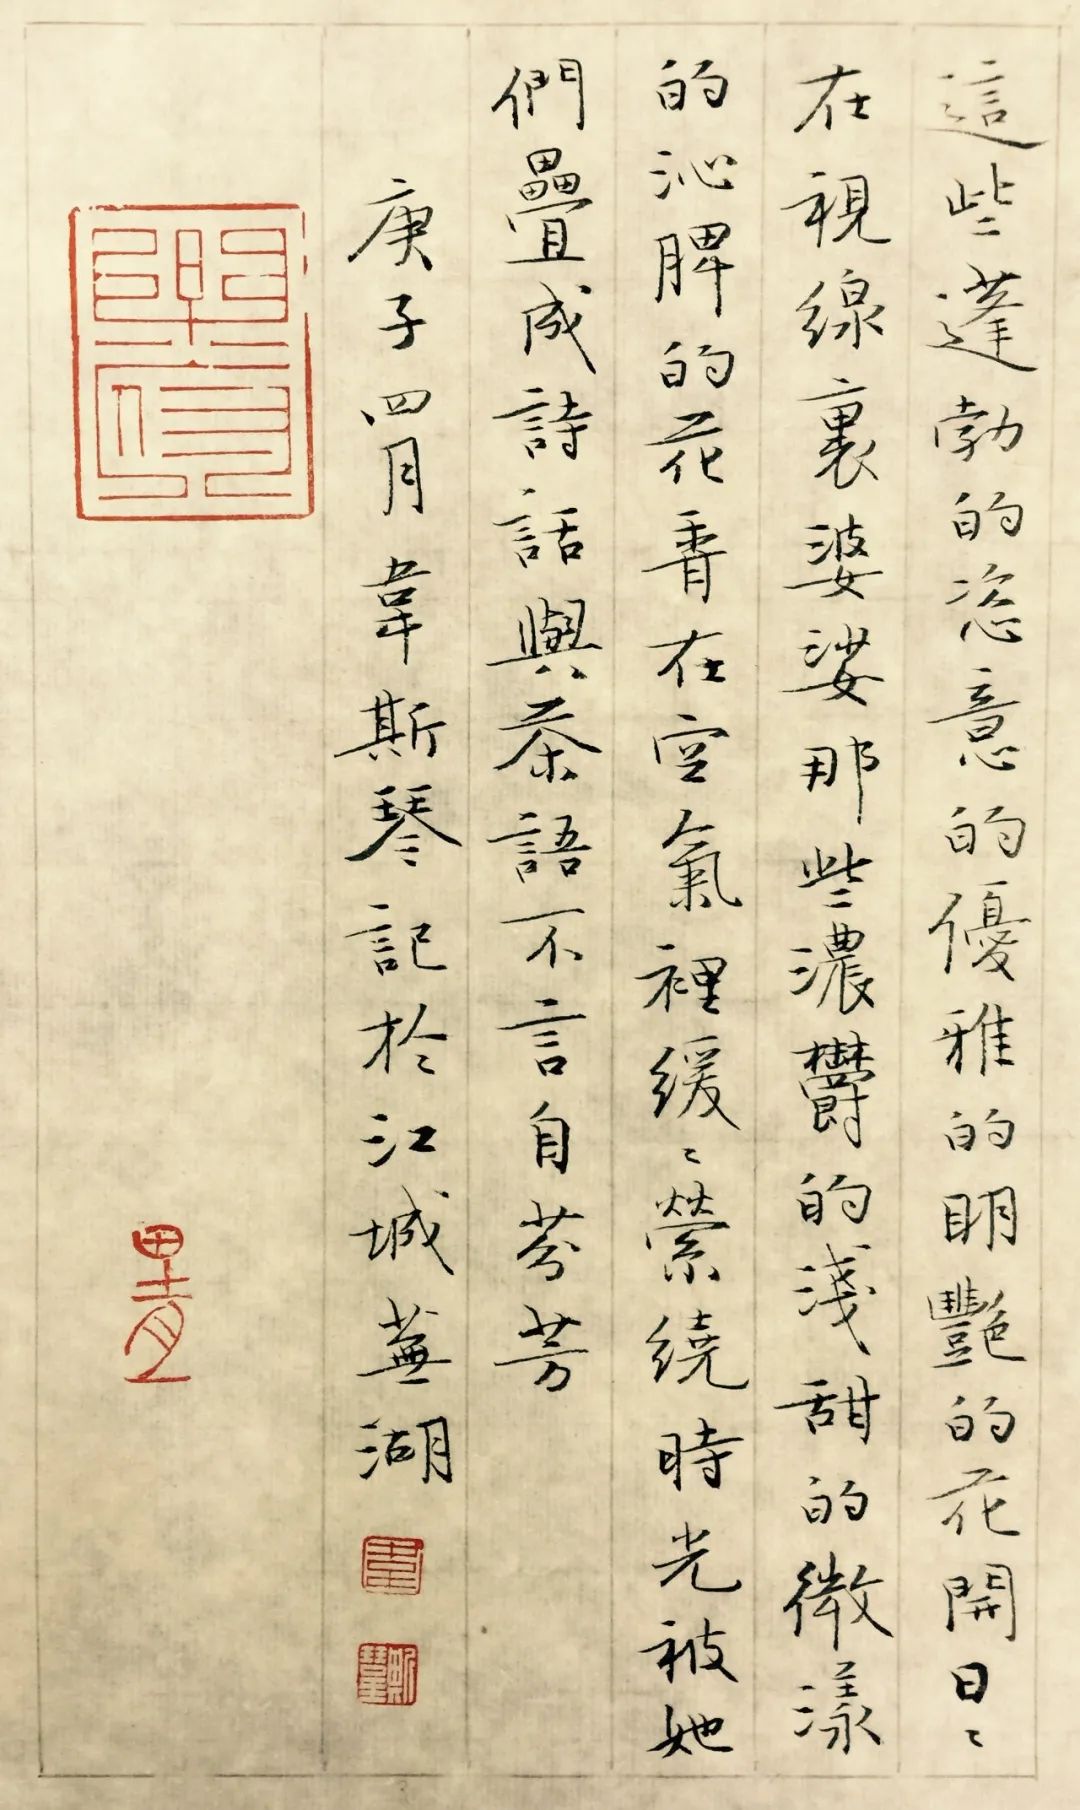 這些蓬勃的恣意的優雅的明艷的花開日〻
在視線裏婆娑那些濃鬱的淺甜的微漾
的沁脾的花香在空氣裡緩〻縈繞時光被她
們疊成詩話與茶語不言自芬芳
庚子四月韋斯琴記於江城蕪湖